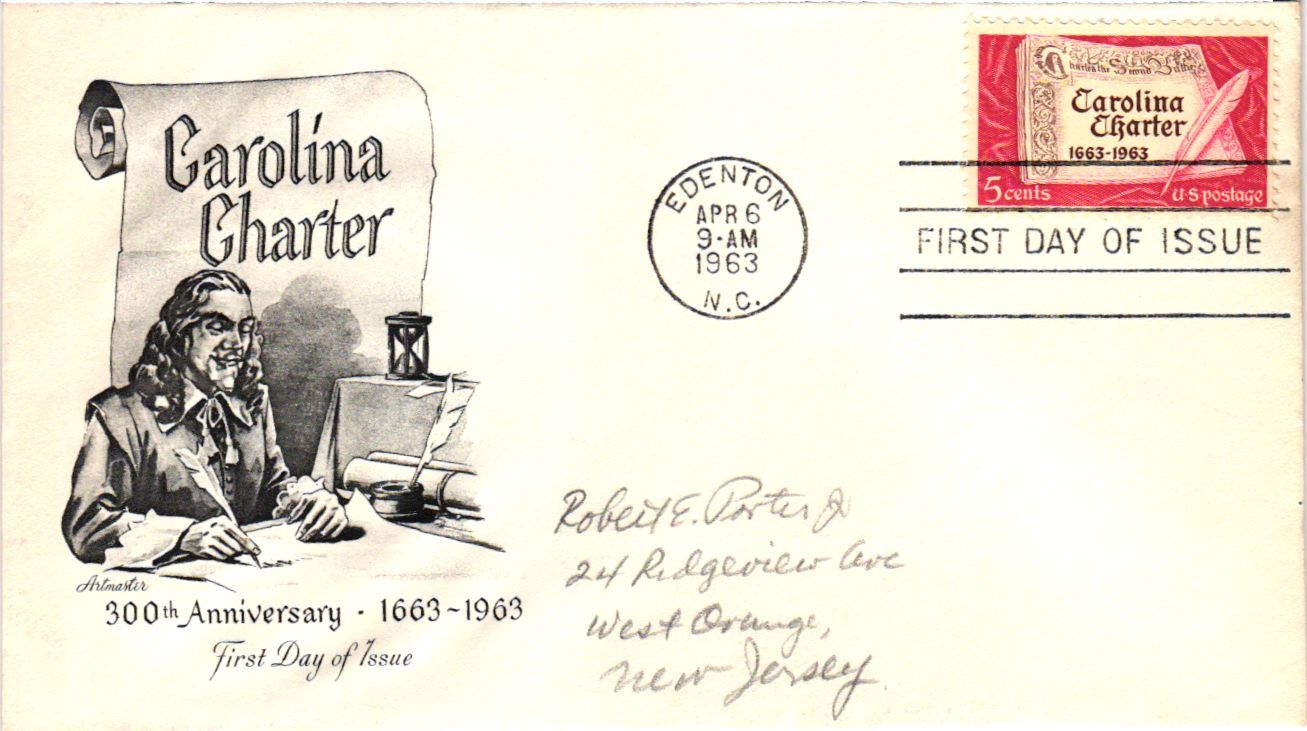 Carolina
Charter
Artmaster
300th Anniversary · 1663~1963
First Day of Issue
EDENTON
APR 6
9-AM
1963
N.C.
Charles the Second
Carolina
Charter
1663-1963
5 cents
U·S·postage
FIRST DAY OF ISSUE
Robert E. Porter Jr
24 Ridgeview Ave
West Orange,
New Jersey